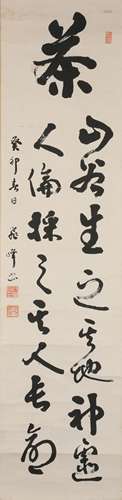 茶
山谷生之其地神霊
人倫採之其人長命
癸卯春日